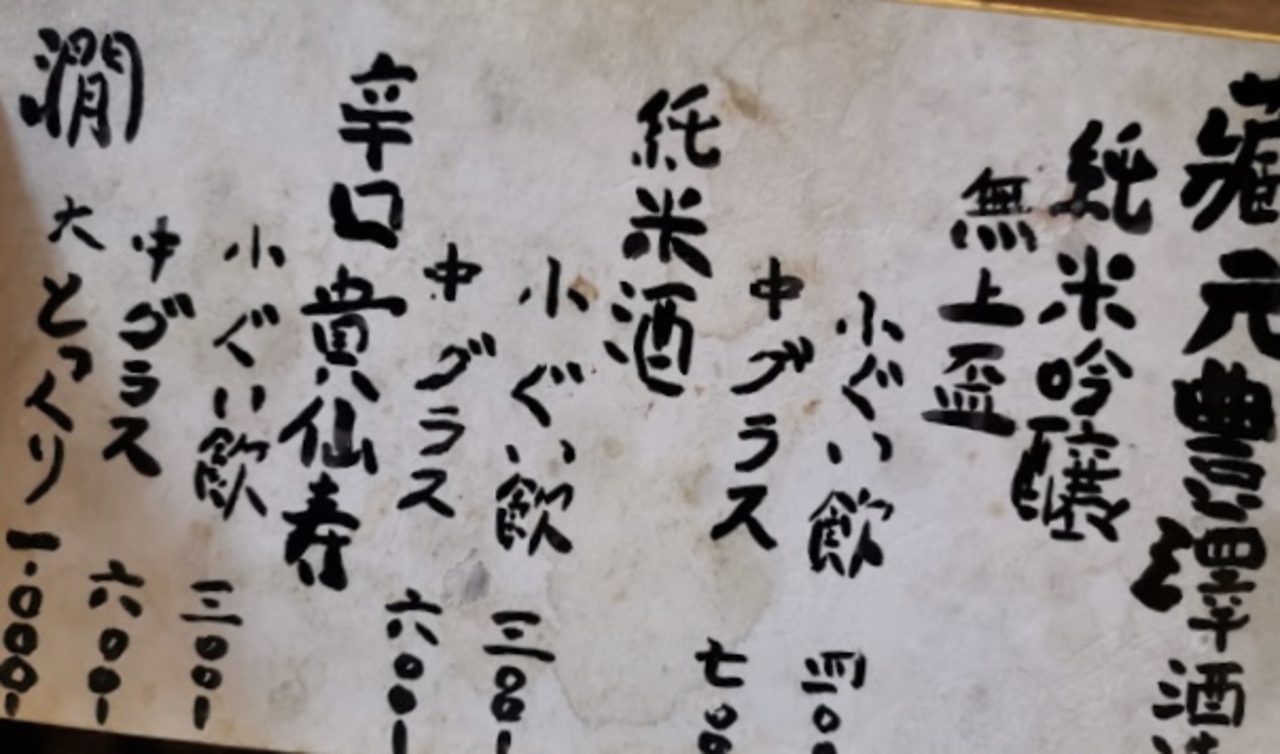 蔵元豊澤酒
純米吟醸
無上盃
小ぐい飲 四〇
中グラス 七〇〇
純米酒
小ぐい飲 三〇〇ー
中グラス 六〇〇ー
辛口 貴仙寿
小ぐい飲 三〇〇ー
中グラス 六〇〇ー
大とっくり 一.〇〇〇ー